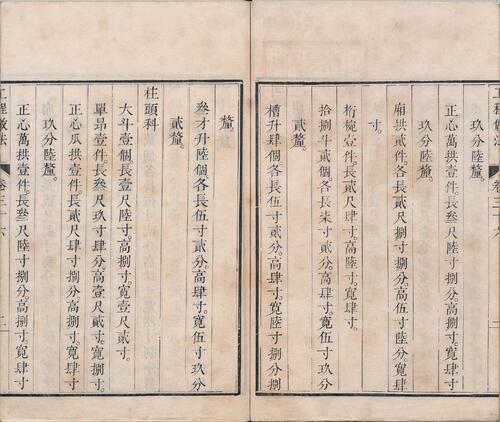 玖分陸釐。
正心萬拱壹件。長叁尺陸寸捌分。高捌寸。寬肆寸
玖分陸釐。
廂拱貳件。各長貳尺捌寸捌分。高伍寸陸分。寬肆
寸。
桁椀壹件。長貳尺肆寸。高陸寸。寬肆寸。
拾捌斗貳個。各長柒寸貳分。高肆寸。寬伍寸玖分
貳釐。
槽升肆個。各長伍寸貳分。高肆寸。寬陸寸捌分捌
工程做法
卷三十六
釐。
叁才升陸個。各長伍寸貳分。高肆寸。寬伍寸玖分
貳釐。
柱頭科
大斗壹個。長壹尺陸寸。高捌寸。寬壹尺貳寸。
單昂壹件。長叁尺玖寸肆分。高壹尺貳寸。寬捌寸。
正心瓜拱壹件。長貳尺肆寸捌分。高捌寸。寬肆寸
玖分陸釐。
正心萬拱壹件。長叁尺陸寸捌分。高捌寸。寬肆寸
工程做法
卷三十六
二